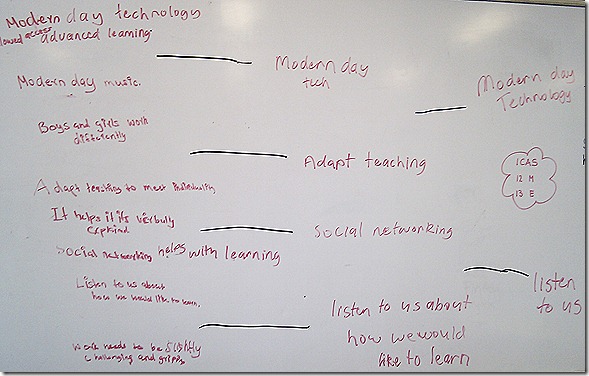 Modern day technology
allowed access advanced learning.
Modern day music.
Boys and girls work
differently
Adapt teaching to meet individuality
It helps if its verbuly
explained
Social networking helps with learning
Listen to us about
how we would like to learn.
Work needs to be slightly
challenging and
Modern day
tech
Adapt teaching
Social networking
listen to us about
how we would
like to learn
Modern day
Technology
ICAS
12 M
13 E
listen
to us